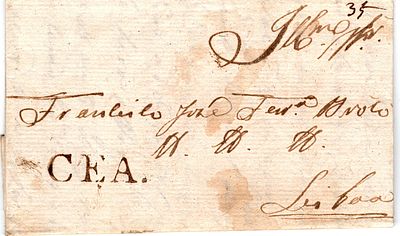 35
Illmo Snr
Francisco José Ferra Broto
CEA.
Lisboa